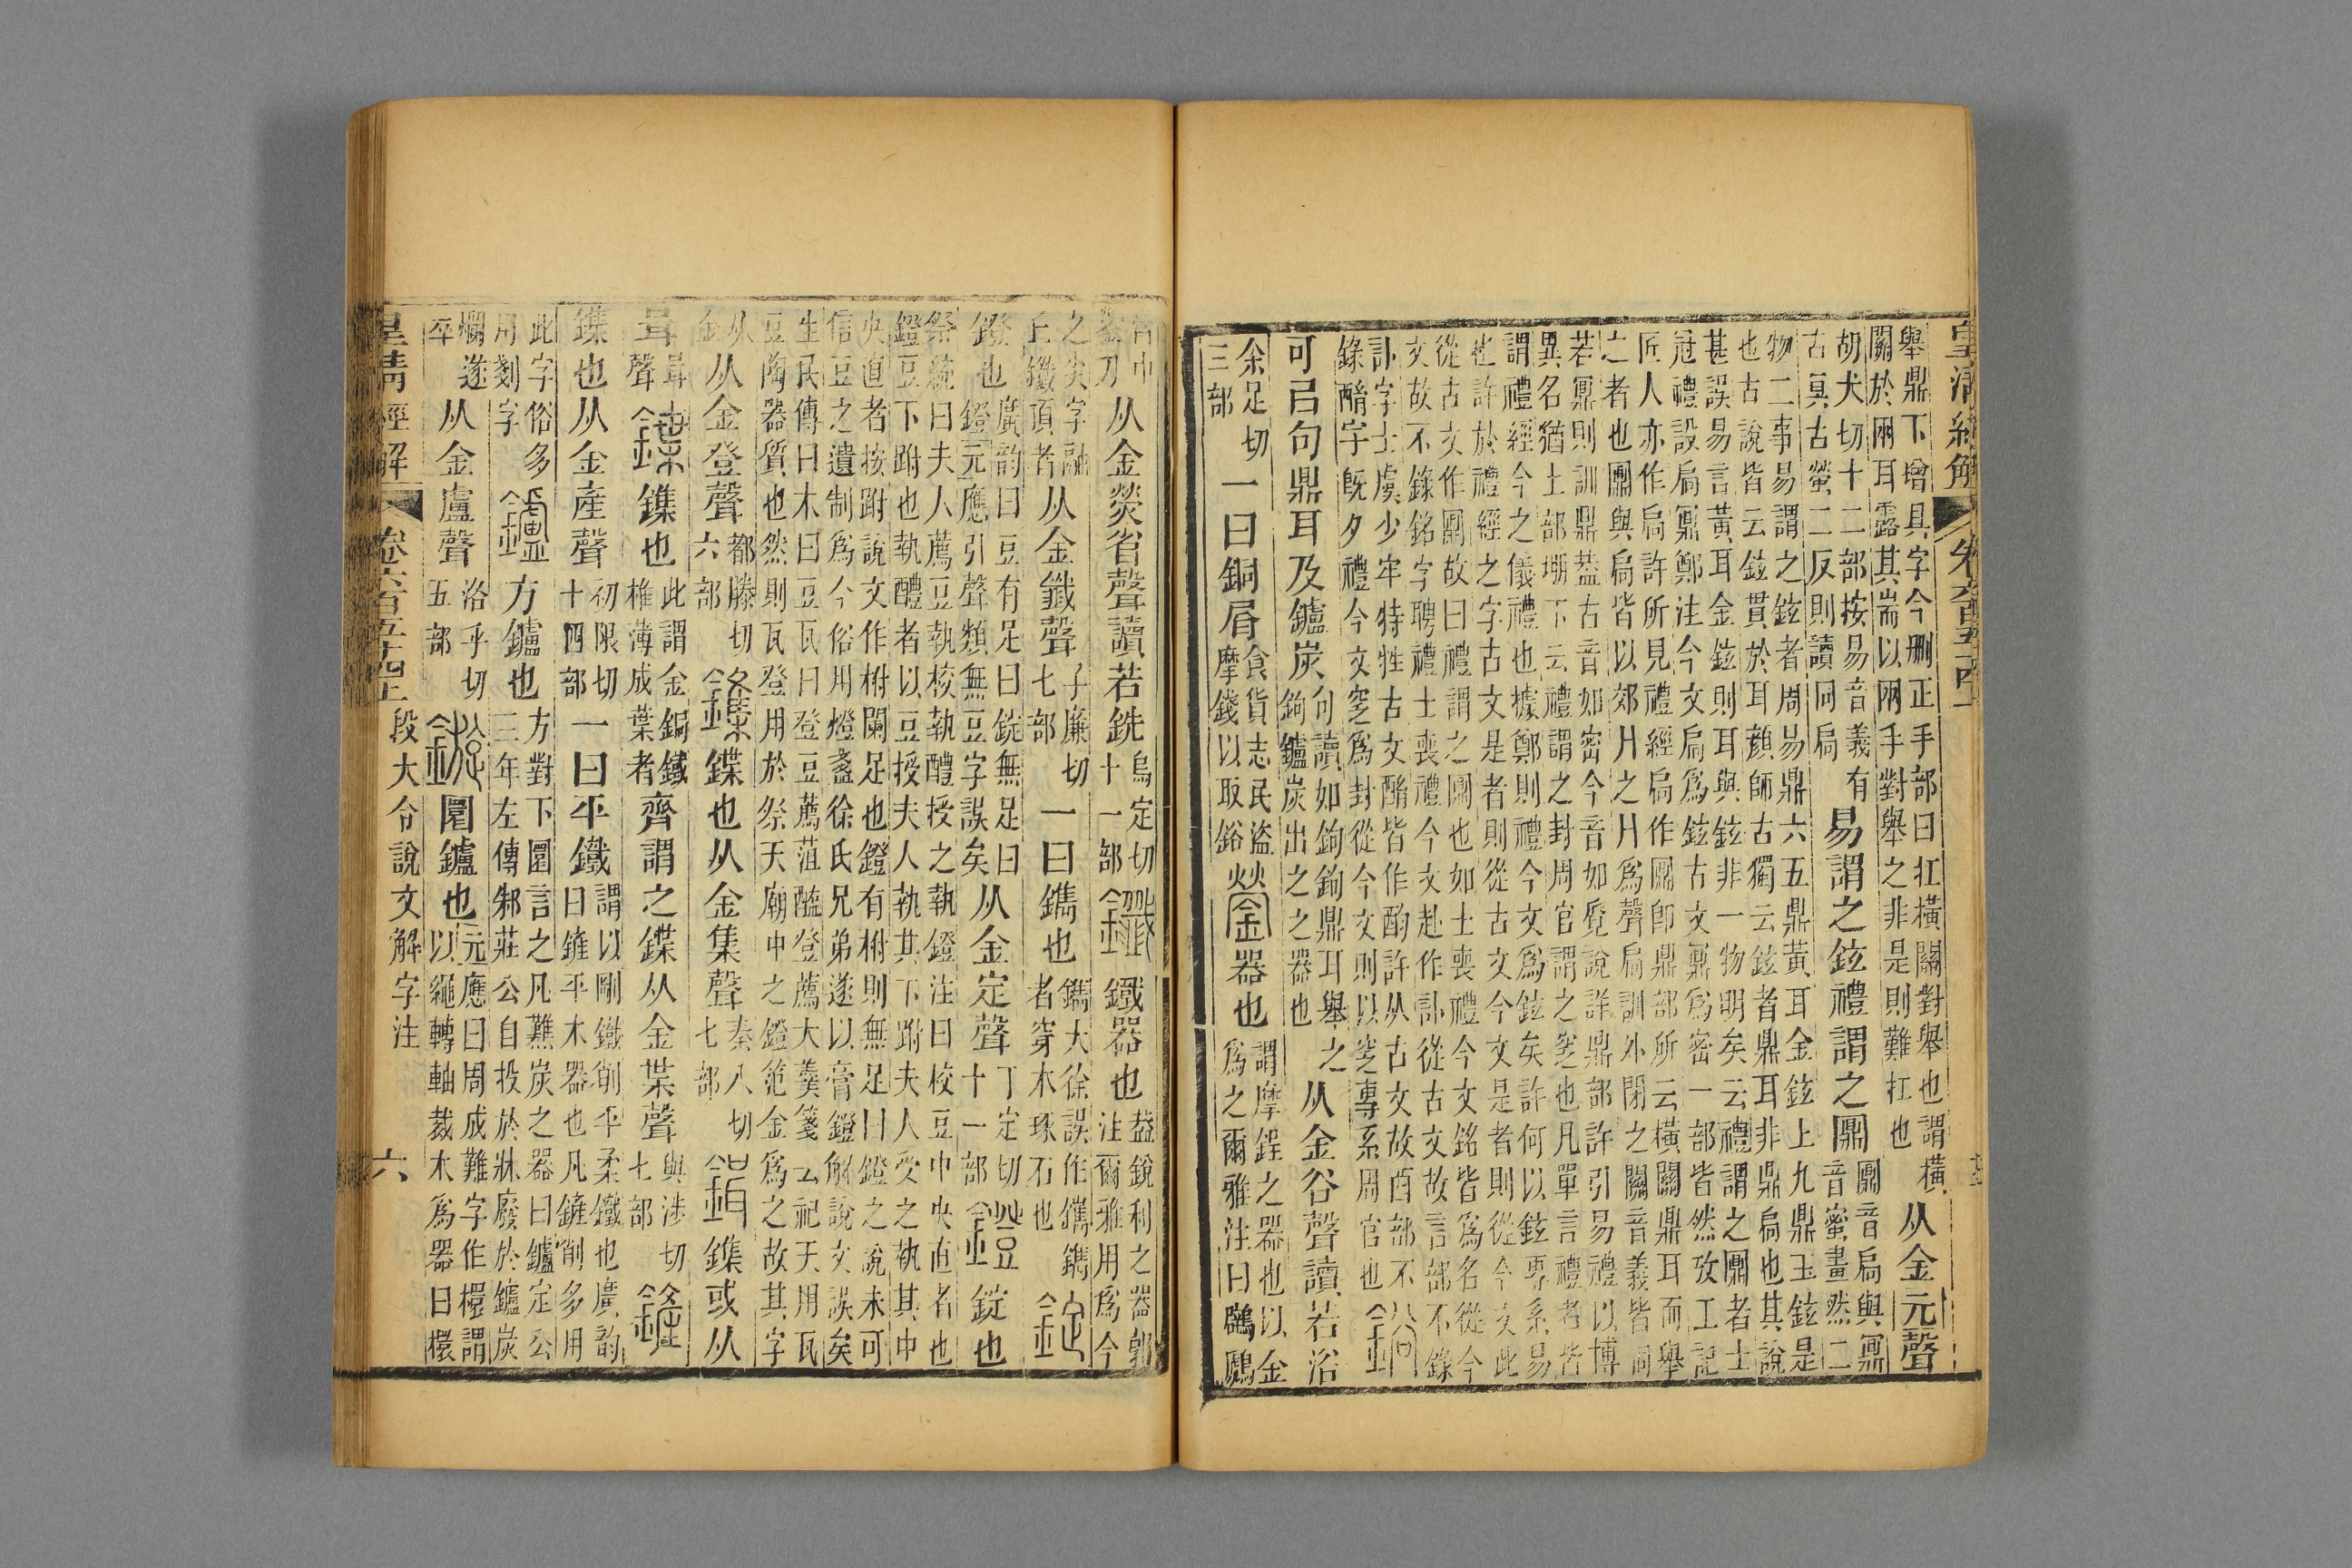 皇清經解 卷六百五十四上
舉鼎下增具字今刪正手部曰扛橫關對舉也謂橫
關於兩耳露其耑以兩手對舉之非是則難扛也
从金元聲
胡犬切十二部按易音義有
古冥古螢二反則讀同扃
易謂之鉉禮謂之鼏
鼏音扃與鼏
音蜜畫然二
物二事易謂之鉉者周易鼎六五鼎黃耳金鉉上九鼎玉鉉是
也古說皆云鉉貫於耳顏師古獨云鉉者鼎耳非鼎扃也其說
甚誤易言黃耳金鉉則耳與鉉非一物明矣云禮謂之鼏者士
冠禮設扃鼏鄭注今文扃爲鉉古文鼏爲密一部皆然攷工記
匠人亦作扃許所見禮經扃作鼏卽鼎部所云橫關鼎耳而舉
之者也鼏與扃皆以郊冂之冂爲聲扃訓外閉之關音義皆同
若鼏則訓鼎葢古音如密今音如覓說詳鼎部許引易禮以博
異名猶土部堋下云禮謂之封周官謂之窆也凡單言禮者皆
謂禮經今之儀禮也據鄭則禮今文爲鉉矣許何以鉉專系易
也許於禮經之字古文是者則從古文今文是者則從今文此
從古文作鼏故曰禮謂之鼏也如士喪禮今文銘皆爲名從今
文故不錄銘字聘禮士喪禮今文赴作訃從古文故言部不錄
訃字士虞少牢特牲古文酳皆作酌許从古文故酉部不
錄酳字旣夕禮今文窆爲封從今文則以窆專系周官也
鋊
可㠯句鼎耳及鑪炭
句讀如鉤鉤鼎耳舉之
鉤鑪炭出之之器也
从金谷聲讀若浴
余足切
三部
一曰銅屑
食貨志民盜
摩錢以取鋊
鎣器也
謂摩鋥之器也以金
爲之爾雅注曰鷿鷉
膏中
鎣刀
从金熒省聲讀若銑
烏定切
十一部
鑯鐵器也
葢銳利之器郭
注爾雅用爲今
之尖字融
丘鑯頂者
从金韱聲
子廉切
七部
一曰鐫也
鐫大徐誤作㩦鐫
者穿木琢石也
錠
鐙也
廣韵曰豆有足曰錠無足曰
鐙元應引聲類無豆字誤矣
从金定聲
丁定切
十一部
鐙錠也
祭統曰夫人薦豆執校執醴授之執鐙注曰校豆中央直者也
鐙豆下跗也執醴者以豆授夫人執其下跗夫人受之執其中
央直者按跗說文作柎闌足也鐙有柎則無足曰鐙之說未可
信豆之遺制爲今俗用燈盞徐氏兄弟遂以膏鐙解說文誤矣
生民傳曰木曰豆瓦曰登豆薦菹醢登薦大羹箋云祀天用瓦
豆陶器質也然則瓦登用於祭天廟中之鐙笵金爲之故其字
从
金
从金登聲
都滕切
六部
鏶鍱也从金集聲
秦入切
七部
鍓鏶或从
咠
咠聲
鍱鏶也
此謂金銅鐵
椎薄成葉者
齊謂之鍱从金枼聲
與涉切
七部
鏟
鏶也从金產聲
初限切
十四部
一曰平鐵
謂以剛鐵削平柔鐵也廣韵
曰鏟平木器也凡鏟削多用
此字俗多
用剗字
鑪方鑪也
方對下圜言之凡㸐炭之器曰鑪定公
三年左傳邾莊公自投於牀廢於鑪炭
爛遂
卒
从金盧聲
洛乎切
五部
鏇圜鑪也
元應曰周成難字作檈謂
以繩轉軸裁木爲器曰檈
皇清經解 卷六百五十四上 段大令說文解字注 六